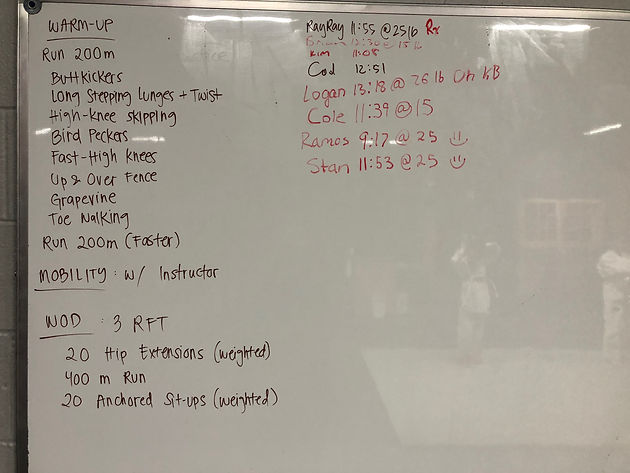 WARM-UP
Run 200m
Buttkickers
Long Stepping Lunges + Twist
High-Knee Skipping
Bird Peckers
Fast-High Knees
Up & Over Fence
Grapevine
Toe Walking
Run 200m (Faster)
MOBILITY : w/ Instructor
WOD : 3 RFT
20 Hip Extensions (weighted)
400 m Run
20 Anchored Sit-ups (weighted)
RayRay 11:55 @ 25lb Rx
Brian 12:30 @ 15 lb
Kim 11:08
Cod 12:51
Logan 13:18 @ 26 lb KB
Cole 11:39 @ 15
Ramos 9:17 @ 25
Stan 11:53 @ 25